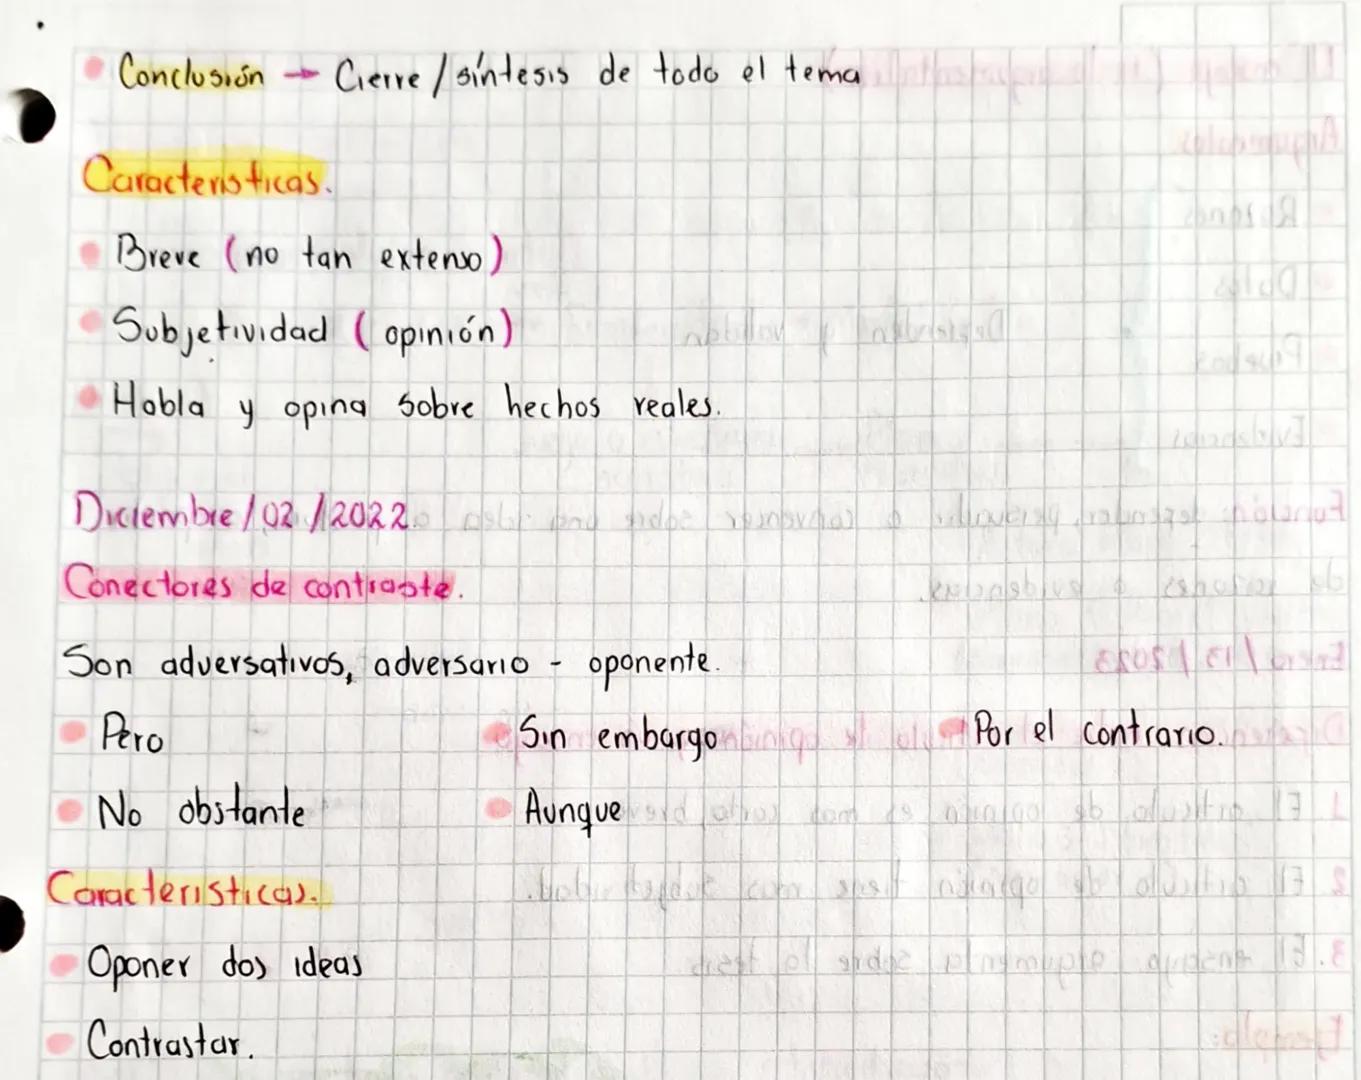 Conclusión → Cierre / síntesis de todo el tema
Caracteristicas.
Breve (no tan extenso)
Subjetividad (opinión)
Habla y opina sobre hechos reales.
Diciembre / 02 / 2022
Conectores de contraste.
Son adversativos, adversario - oponente.
Pero Sin embargo Por el contrario.
No obstante Aunque
Caracteristicas.
Oponer dos ideas
Contrastar.